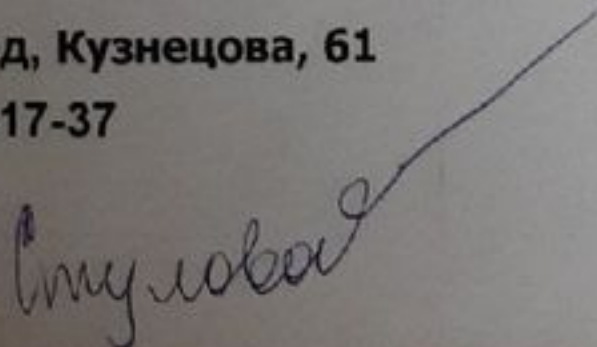 д, Кузнецова, 61
17-37
Стулова